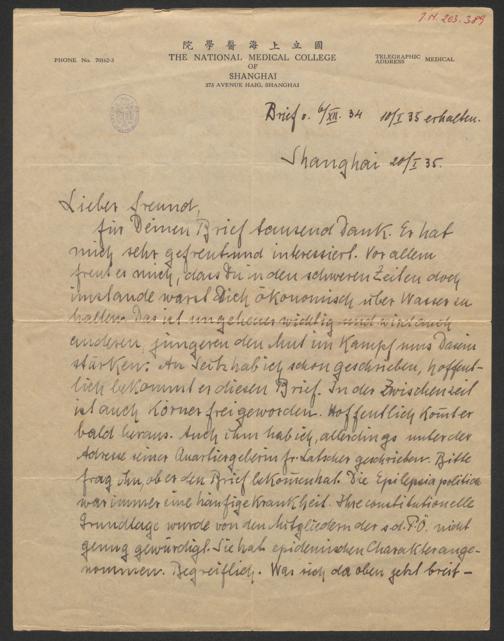 J.N. 203.389
院學醫海上立國
PHONE No. 70162-3
THE NATIONAL MEDICAL COLLEGE
OF
SHANGHAI
TELEGRAPHIC ADDRESS MEDICAL
373 AVENUE HAIG, SHANGHAI
Brief v. 6/XII. 34 10/I 35 erhalten.
Shanghai 20/I 35.
Lieber Freund,
für Deinen Brief tausend Dank. Er hat
mich sehr gefreut und interessiert. Vor allem
freut es mich, dass Du in den schweren Zeiten doch
imstande warst Dich ökonomisch über Wasser zu
halten. Das ist ungeheuer wichtig und wird auch
anderen, jüngeren den Mut im Kampf ums Dasein
stärken. An Seitz hab ich schon geschrieben, hoffent-
lich bekommt er diesen Brief. In der Zwischenzeit
ist auch Körner frei geworden. Hoffentlich kommt er
bald heraus. Auch ihm hab ich, allerdings unter der
Adresse seiner Quartiergeberin fr. Latscher geschrieben. Bitte
frag ihn, ob er den Brief bekommen hat. Die Epilepsia politica
war immer eine häufige Krankheit. Ihre constitutionelle
Grundlage wurde von den Mitgliedern der s.d.P.Ö. nicht
genug gewürdigt. Sie hat epidemischen Charakter ange-
nommen. Begreiflich. Was sich da oben jetzt breit-